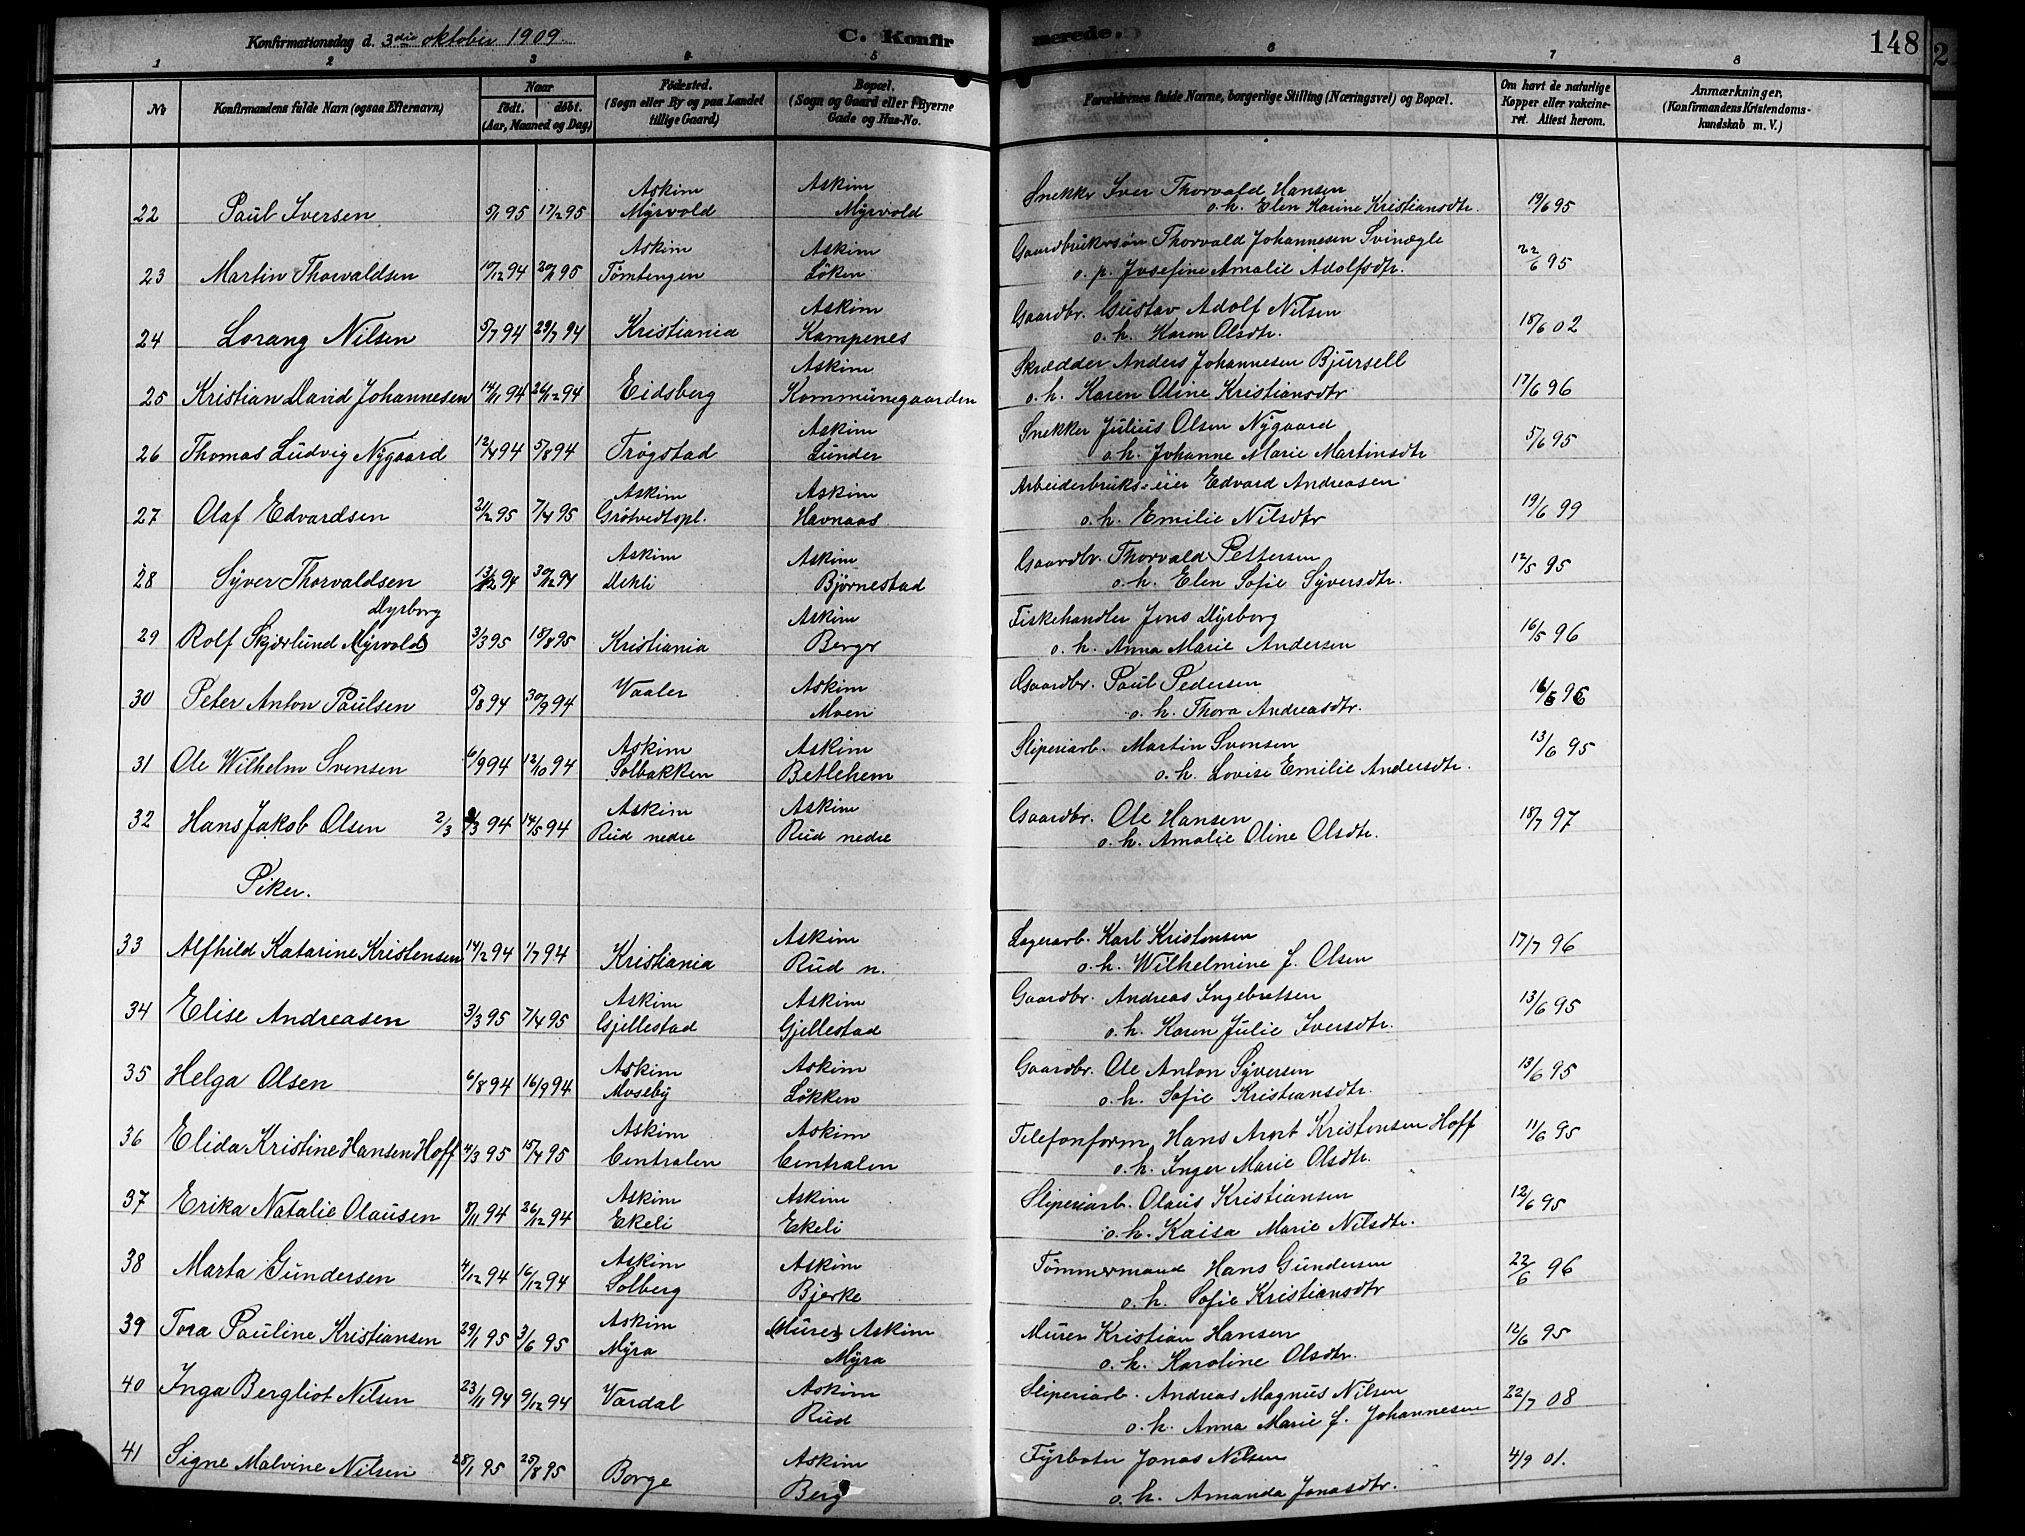 Konfirmationsdag d. 3die oktober 1909
C. Konfirmerede.
148
1 2 3 4 5 6 7 8
No Konfirmandens fulde Navn (ogsaa Efternavn) Naar født. døbt. (Aar, Maaned og Dag) Fødested. (Sogn eller By og paa Landet tillige Gaard) Bopæl. (Sogn og Gaard eller i Byerne Gade og Hus-No. Forældrenes fulde Navne, borgerlige Stilling (Næringsvei) og Bopæl. Om havt de naturlige Kopper eller vakcineret. Attest herom. Anmærkninger, (Konfirmandens Kristendomskundskab m. V.)
Askim Askim Snekker Iver Thorvald Hansen
22 Paul Iversen 5/1 95 17/2 95 Myrvold Myrvold o. h. Elen Karine Kristiansdtr. 19/6 95
Askim Askim Gaardbrukersøn Thorvald Johannesen Svinægle
23 Martin Thorvaldsen 10/12 94 95 Tomtengen Løken o. p. Josefine Amalie Adolfsdtr. 22/6 95
Askim Gaardbr. Gustav Adolf Nilsen
24 Lorang Nilsen 5/7 94 29/7 94 Kristiania Kampenes o. h. Karen Olsdtr. 18/6 02
Askim Skrædder Anders Johannesen Bjursell
25 Kristian David Johannesen 14/11 94 26/12 94 Eidsberg Kommunegaarden o. h. Karen Oline Kristiansdtr 17/6 96
Askim Snekker Julius Olsen Nygaard
26 Thomas Ludvig Nygaard 12/4 94 5/8 94 Trøgstad Lunder o. h. Johanne Marie Martinsdtr 5/6 95
Askim Askim Arbeiderbruks-eier Edvard Andreasen
27 Olaf Edvardsen 21/2 95 7/4 95 Grøtvedtspl. Havnaas o. h. Emilie Nilsdtr 19/6 99
Askim Askim Gaardbr. Thorvald Pettersen
28 Syver Thorvaldsen 13/12 94 30/12 94 Dehli Bjørnestad o. h. Elen Sofie Syversdtr. 12/5 95
Dyrborg Askim Fiskehandler Jens Dyrborg
29 Rolf Skjærlund Myrvold 3/3 95 18/8 95 Kristiania Berger o. h. Anna Marie Andersen 16/5 96
Askim Gaardbr. Paul Pedersen
30 Peter Anton Paulsen 5/8 94 30/9 94 Vaaler Moen o. h. Thora Andreasdtr. 16/6 96
Askim Askim Sliperiarb. Martin Svensen
31 Ole Wilhelm Svensen 6/9 94 12/10 94 Solbakken Betlehem o. h. Lovise Emilie Andersdtr. 13/6 95
Askim Askim Gaardbr. Ole Hansen
32 Hans Jakob Olsen 2/3 2/3 94 14/5 94 Rud nedre Rud nedre o. h. Amalie Oline Olsdtr. 18/7 97
Piker.
Askim Lagerarb. Karl Kristensen
33 Alfhild Katarine Kristensen 14/2 94 1/7 94 Kristiania Rud n. o. h. Wilhelmine f. Olsen 17/7 96
Askim Askim Gaardbr. Andreas Ingebretsen
34 Elise Andreasen 3/3 95 7/4 95 Gjellestad Gjellestad o. h. Karen Julie Iversdtr. 13/6 95
Askim Askim Gaardbr. Ole Anton Syversen
35 Helga Olsen 6/8 94 16/9 94 Moseby Løkken o. h. Sofie Kristiansdtr. 13/6 95
Askim Askim Telefonform. Hans Arnt Kristensen Hoff
36 Elida Kristine Hansen Hoff 4/3 95 15/4 95 Centralen Centralen o. h. Inger Marie Olsdtr. 11/6 95
Askim Askim Sliperiarb. Olaus Kristiansen
37 Erika Natalie Olausen 8/11 94 26/12 94 Ekeli Ekeli o. h. Kaisa Marie Nilsdtr. 12/6 95
Askim Askim Tømmermand Hans Gundersen
38 Marta Gundersen 4/12 94 16/12 94 Solberg Bjerke o. h. Sofie Kristiansdtr 22/6 96
Askim Askim Murer Kristian Hansen
39 Tora Pauline Kristiansen 29/1 95 3/6 95 Myra Myra o. h. Karoline Olsdtr. 12/6 95
Askim Sliperiarb. Andreas Magnus Nilsen
40 Inga Bergliot Nilsen 23/11 94 9/12 94 Vardal Rud o. h. Anna Marie f. Johannesen 22/7 08
Askim Fyrbøter Jonas Nilsen
41 Signe Malvine Nilsen 28/1 95 25/8 95 Borge Berg o. h. Amanda Jonasdtr. 4/9 01.